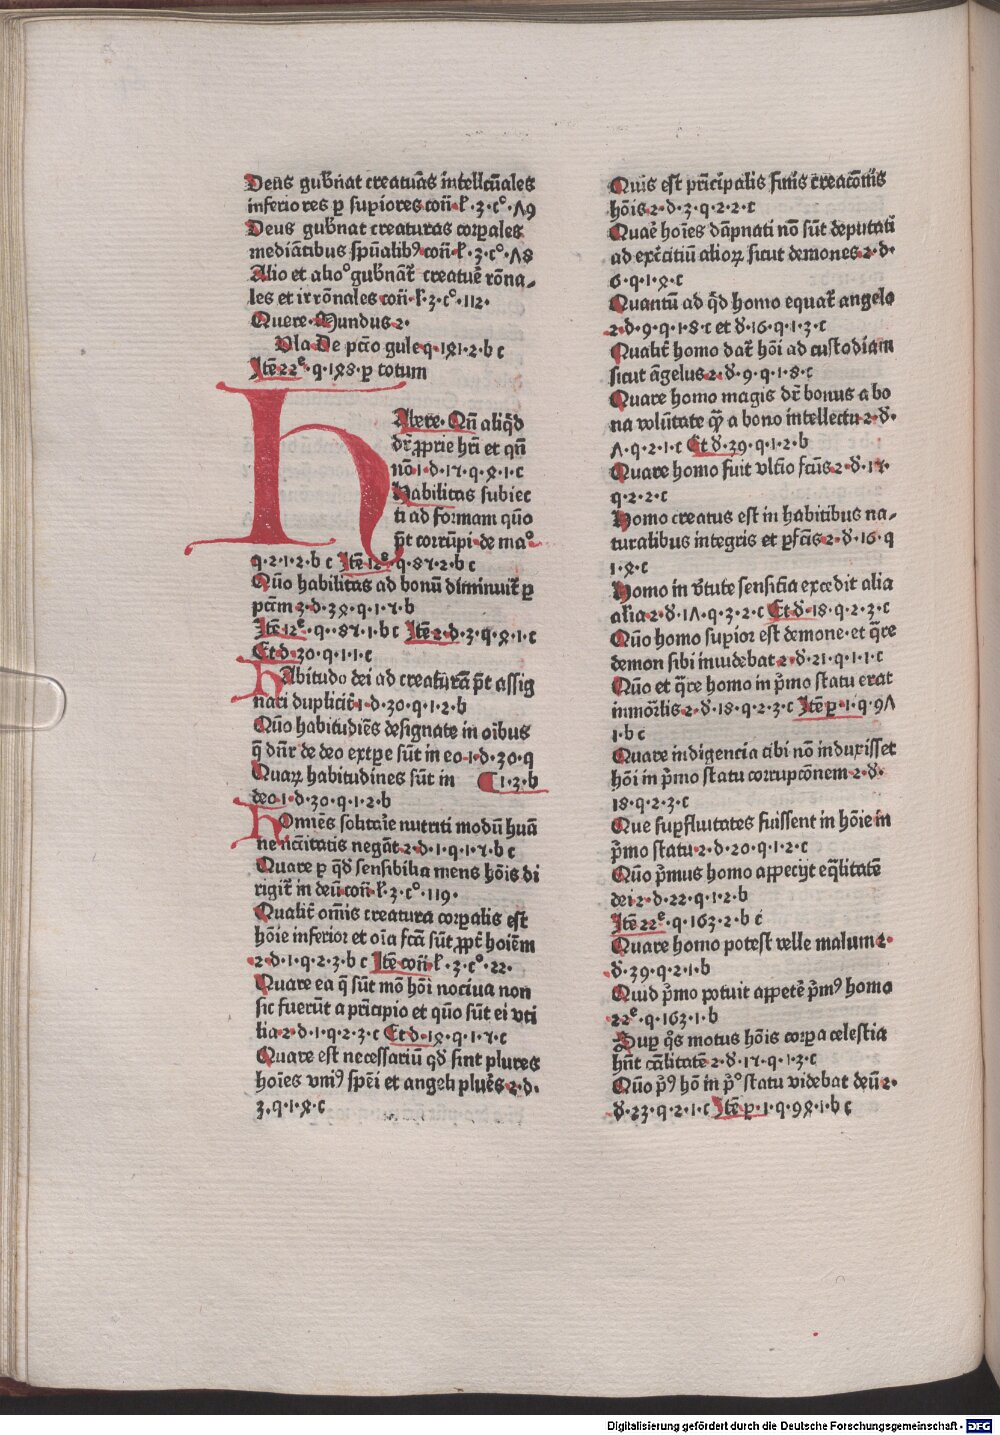 Deus gub̄nat creatuās intellcūales
inferiores ꝑ suꝑiores con̄·l̄·3·c°·Λ9
Deus gub̄nat creaturas corꝑales
mediātibus spūalibꝰ con̄·l̄·3·c°·Λ8
Alio et alio° gub̄nat̄ creatuē rōna⸗
les et irrōnales con̄·l̄·3·c°·112·
Quere·Mundus 2·
Vla De pctō gule q·1ꝝ1·2·b c
Itē 22ᵉ·q·1ꝝ8·ꝑ totum
HAbere·Qn̄ aliq̄d
dr̄ ꝓprie hr̄i et qn̄
nō 1·d·1ꝛ·q·ꝝ·1·c
Habilitas subiec
ti ad formam quō
p̄t corrūpi·de ma°
q·2·1·2·b c Itē 12ᵉ·q·8ꝛ·2·b c
Quō habilitas ad bonū diminuit̄ ꝑ
pctm̄ 2·d·3ꝝ·q·1·ꝛ·b
Itē 12ᵉ·q··8ꝛ·1·b c Itē 2·d·3·q·ꝝ·1·c
Et d·30·q·1·1·c
HAbitudo dei ad creaturā p̄t assig
nari duplicit̄ 1·d·30·q·1·2·b
Quō habitudīes designate in oībus
q̄ dn̄r de deo extꝑe sūt in eo·1·d·30·q
Quaꝝ habitudines sūt in ¶1·3·b
deo 1·d·30·q·1·2·b
HOmīes solitarīe nutriti modū huā
ne nc̄citatis negāt 2·d·1·q·1·ꝛ·b c
Quare ꝑ q̄d sensibilia mens hōis di
rigit̄ in deū con̄·l̄·3·c°·119·
Qualit̄ om̄is creatura corꝑalis est
hōie inferior et oīa fctā sūt ꝓpt̄ hoiēm
2·d·1·q·2·3·b c Itē con̄·l̄·3·c°·22·
Quare ea q̄ sūt mō hōi nociua non
sic fuerūt a prīcipio et quō sūt ei vti
lia 2·d·1·q·2·3·c Et d·1ꝝ·q·1·ꝛ·c
Quare est necessariū qd̄ sint plures
hoīes vniꝰ spēi et angeli pluēs 2·d·
3·q·1·ꝝ·c
Quis est prīcipalis finis creacōnis
hōis 2·d·3·q·2·2·c
Quaē hoīes dāpnati nō sūt deputati
ad exēcitiū alioꝝ sicut demones 2·d·
6·q·1·ꝝ·c
Quantū ad q̄d homo equat̄ angelo
2·d·9·q·1·8·c et d̄·16·q·1·3·c
Qualit̄ homo dat̄ hōi ad custodiam
sicut āgelus 2·d·9·q·1·8·c
Quare homo magis dr̄ bonus a bo
na volūtate q̄ꝫ a bono intellectu 2·d̄·
Λ·q·2·1·c Et d̄·39·q·1·2·b
Quare homo fuit vltīo fctūs 2·d̄·1ꝛ·
q·2·2·c
Homo creatus est in habitibus na⸗
turalibus integris et ꝑfctīs 2·d̄·16·q
1·ꝝ·c
Homo in v̄tute sensitīa excedit alia
alia 2·d̄·1Λ·q·3·2·c Et d̄·18·q·2·3·c
Quō homo suꝑior est demone·et q̄re
demon sibi inuidebat 2·d̄·21·q·1·1·c
Quō et q̄re homo in p̄mo statu erat
inmōrlis 2·d̄·18·q·2·3·c Itē p·1·q·9Λ
1·b c
Quare indigencia cibi nō induxisset
hōi in p̄mo statu corrupcōnem 2·d̄·
18·q·2·3·c
Que suꝑfluitates fuissent in hōie in
p̄mo statu 2·d·20·q·1·2·c
Quō p̄mus homo appecijt eq̄litatē
dei 2·d·22·q·1·2·b
Itē 22ᵉ·q·163·2·b c
Quare homo potest velle malum 2·
d̄·39·q·2·1·b
Quid p̄mo potuit appetē p̄mꝰ homo
22ᵉ·q·163·1·b
Suꝑ q̄s motus hōis corꝑa celestia
hn̄t cālitatē 2·d̄·1ꝛ·q·1·3·c
Quō p̄ꝰ hō in p̄° statu videbat deū 2·
d̄·23·q·2·1·c Itē p·1·q·9ꝝ·1·b c
Digitalisierung gefördert durch die Deutsche Forschungsgemeinschaft · DFG